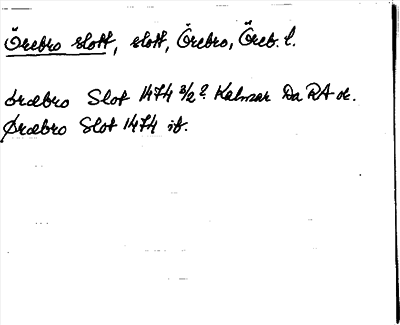 Örebro slott, slott, Örebro, Öreb. l.
Ørœbro Slot 1474 3/2? Kalmar Da RA or.
Ørœbro Slot 1474 ib.